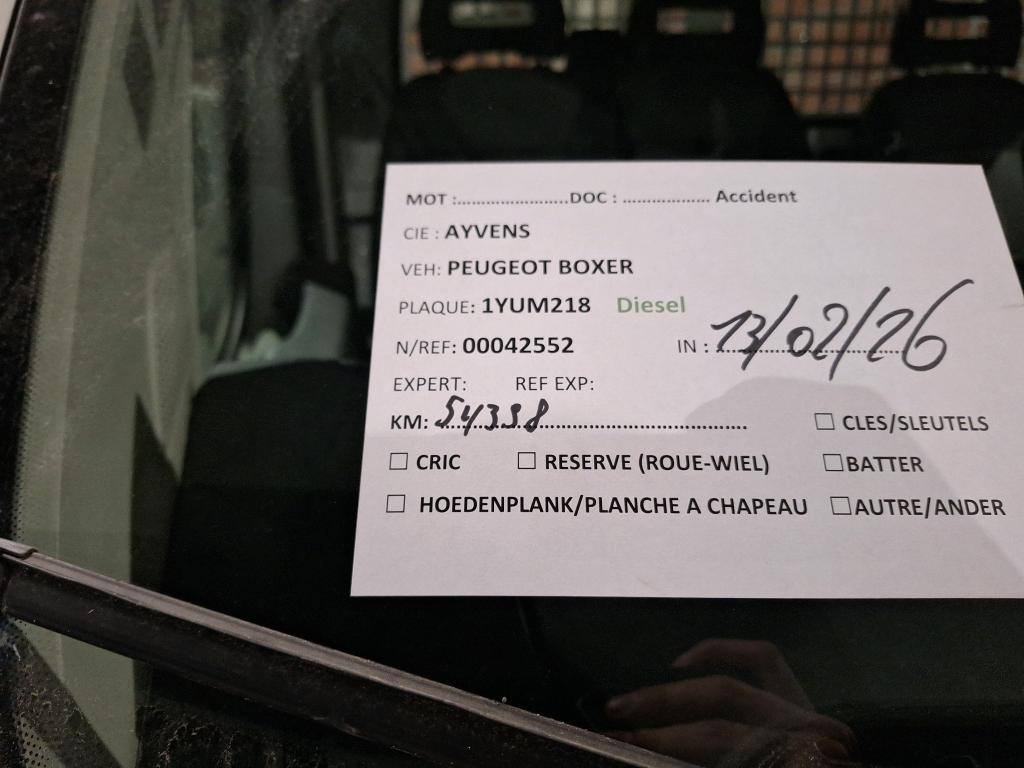 MOT :........................DOC : .................. Accident
CIE : AYVENS
VEH: PEUGEOT BOXER
PLAQUE: 1YUM218 Diesel
N/REF: 00042552 IN : 13/02/26
EXPERT: REF EXP:
KM: 54398 ☐ CLES/SLEUTELS
☐ CRIC ☐ RESERVE (ROUE-WIEL) ☐ BATTER
☐ HOEDENPLANK/PLANCHE A CHAPEAU ☐ AUTRE/ANDER